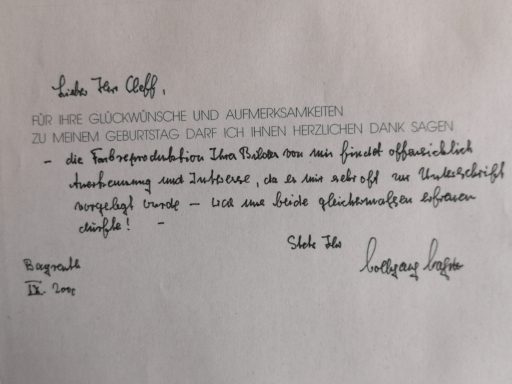 Lieber Herr Cleff,
FÜR IHRE GLÜCKWÜNSCHE UND AUFMERKSAMKEITEN
ZU MEINEM GEBURTSTAG DARF ICH IHNEN HERZLICHEN DANK SAGEN
– die Farbreproduktion Ihres Bildes von mir findet offensichtlich
Anerkennung und Interesse, da es mir sehr oft zur Unterschrift
vorgelegt wurde – was uns beide gleichermaßen erfreuen
dürfte! –
Stets Ihr
Wolfgang Wagner
Bayreuth
IX.